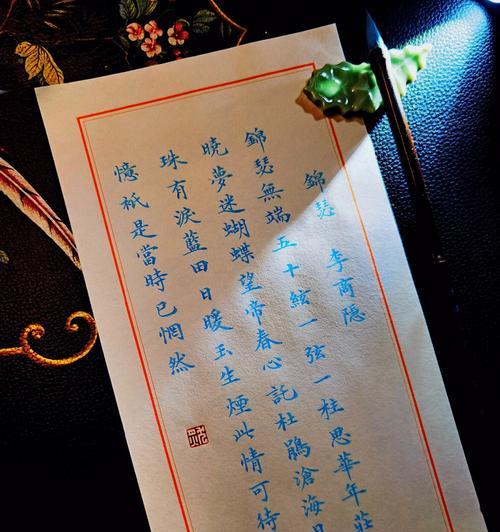 錦瑟 李商隐
錦瑟無端五十絃一弦一柱思華年莊
曉夢迷蝴蝶望帝春心託杜鵑滄海月
珠有淚藍田日暖玉生煙此情可待
憶祇是當時已惘然